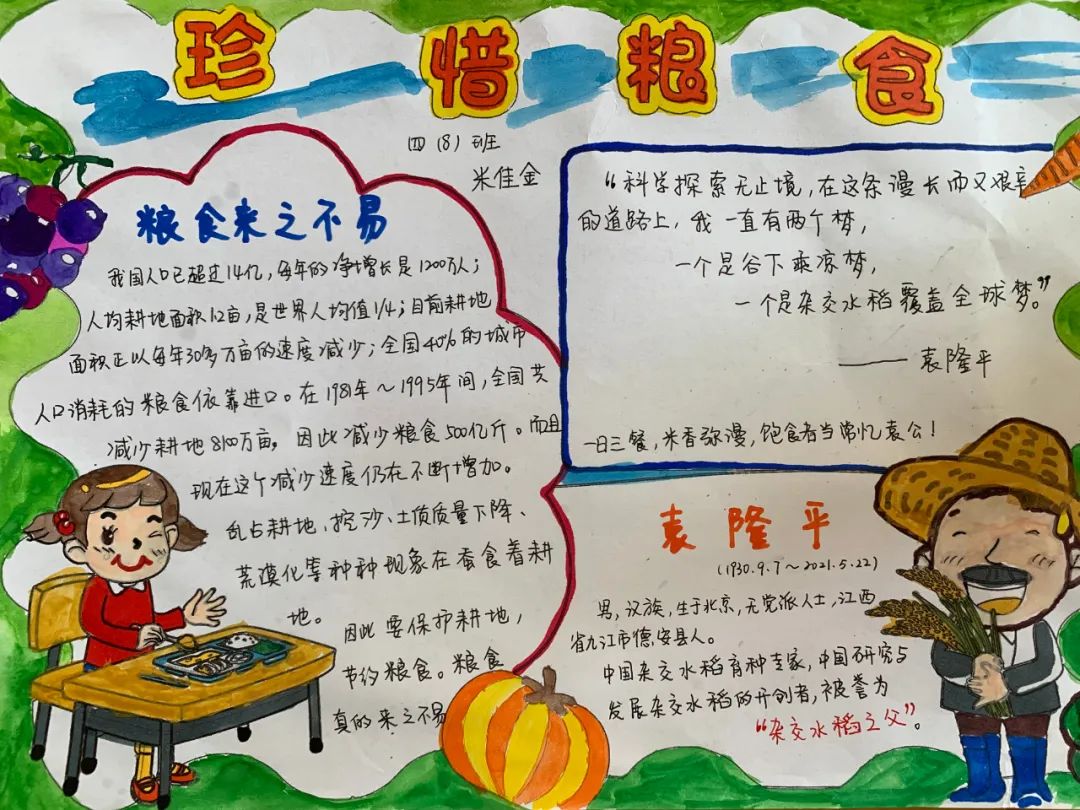 珍惜粮食
四（8）班
米佳金
粮食来之不易
我国人口已超过14亿，每年的净增长是1200万人；
人均耕地面积1.2亩，是世界人均值1/4；目前耕地
面积正以每年30多万亩的速度减少；全国40%的城市
人口消耗的粮食依靠进口。在1981年～1995年间，全国共
减少耕地8100万亩，因此减少粮食500亿斤。而且
现在这个减少速度仍在不断增加。
乱占耕地、挖沙、土质质量下降、
荒漠化等种种现象在蚕食着耕
地。
因此要保护耕地，
节约粮食。粮食
真的来之不易
“科学探索无止境，在这条漫长而又艰辛
的道路上，我一直有两个梦，
一个是谷下乘凉梦，
一个是杂交水稻覆盖全球梦。”
——袁隆平
一日三餐，米香弥漫，饱食者当常忆袁公！
袁隆平
（1930.9.7～2021.5.22）
男，汉族，生于北京，无党派人士，江西
省九江市德安县人。
中国杂交水稻育种专家，中国研究与
发展杂交水稻的开创者，被誉为
“杂交水稻之父”。